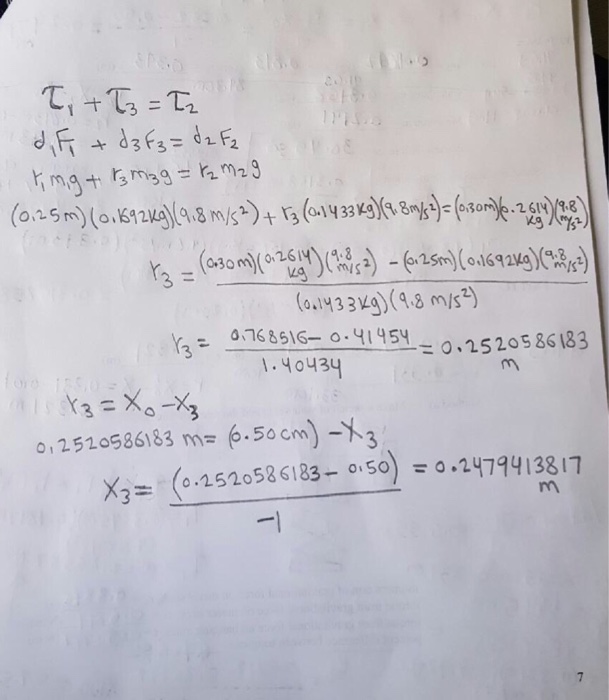 τ₁ + τ₃ = τ₂
d₁F₁ + d₃F₃ = d₂F₂
r₁m₁g + r₃m₃g = r₂m₂g
(0.25m)(0.1692kg)(9.8m/s²) + r₃(0.1433kg)(9.8m/s²) = (0.30m)(0.2614kg)(9.8m/s²)
r₃ = (0.30m)(0.2614kg)(9.8m/s²) - (0.25m)(0.1692kg)(9.8m/s²)
(0.1433kg)(9.8 m/s²)
r₃ = 0.768516 - 0.41454 = 0.2520586183 m
1.40434
r₃ = X₀ - X₃
0.2520586183 m = (0.50cm) - X₃
X₃ = (0.2520586183 - 0.50) = 0.2479413817 m
-1
7